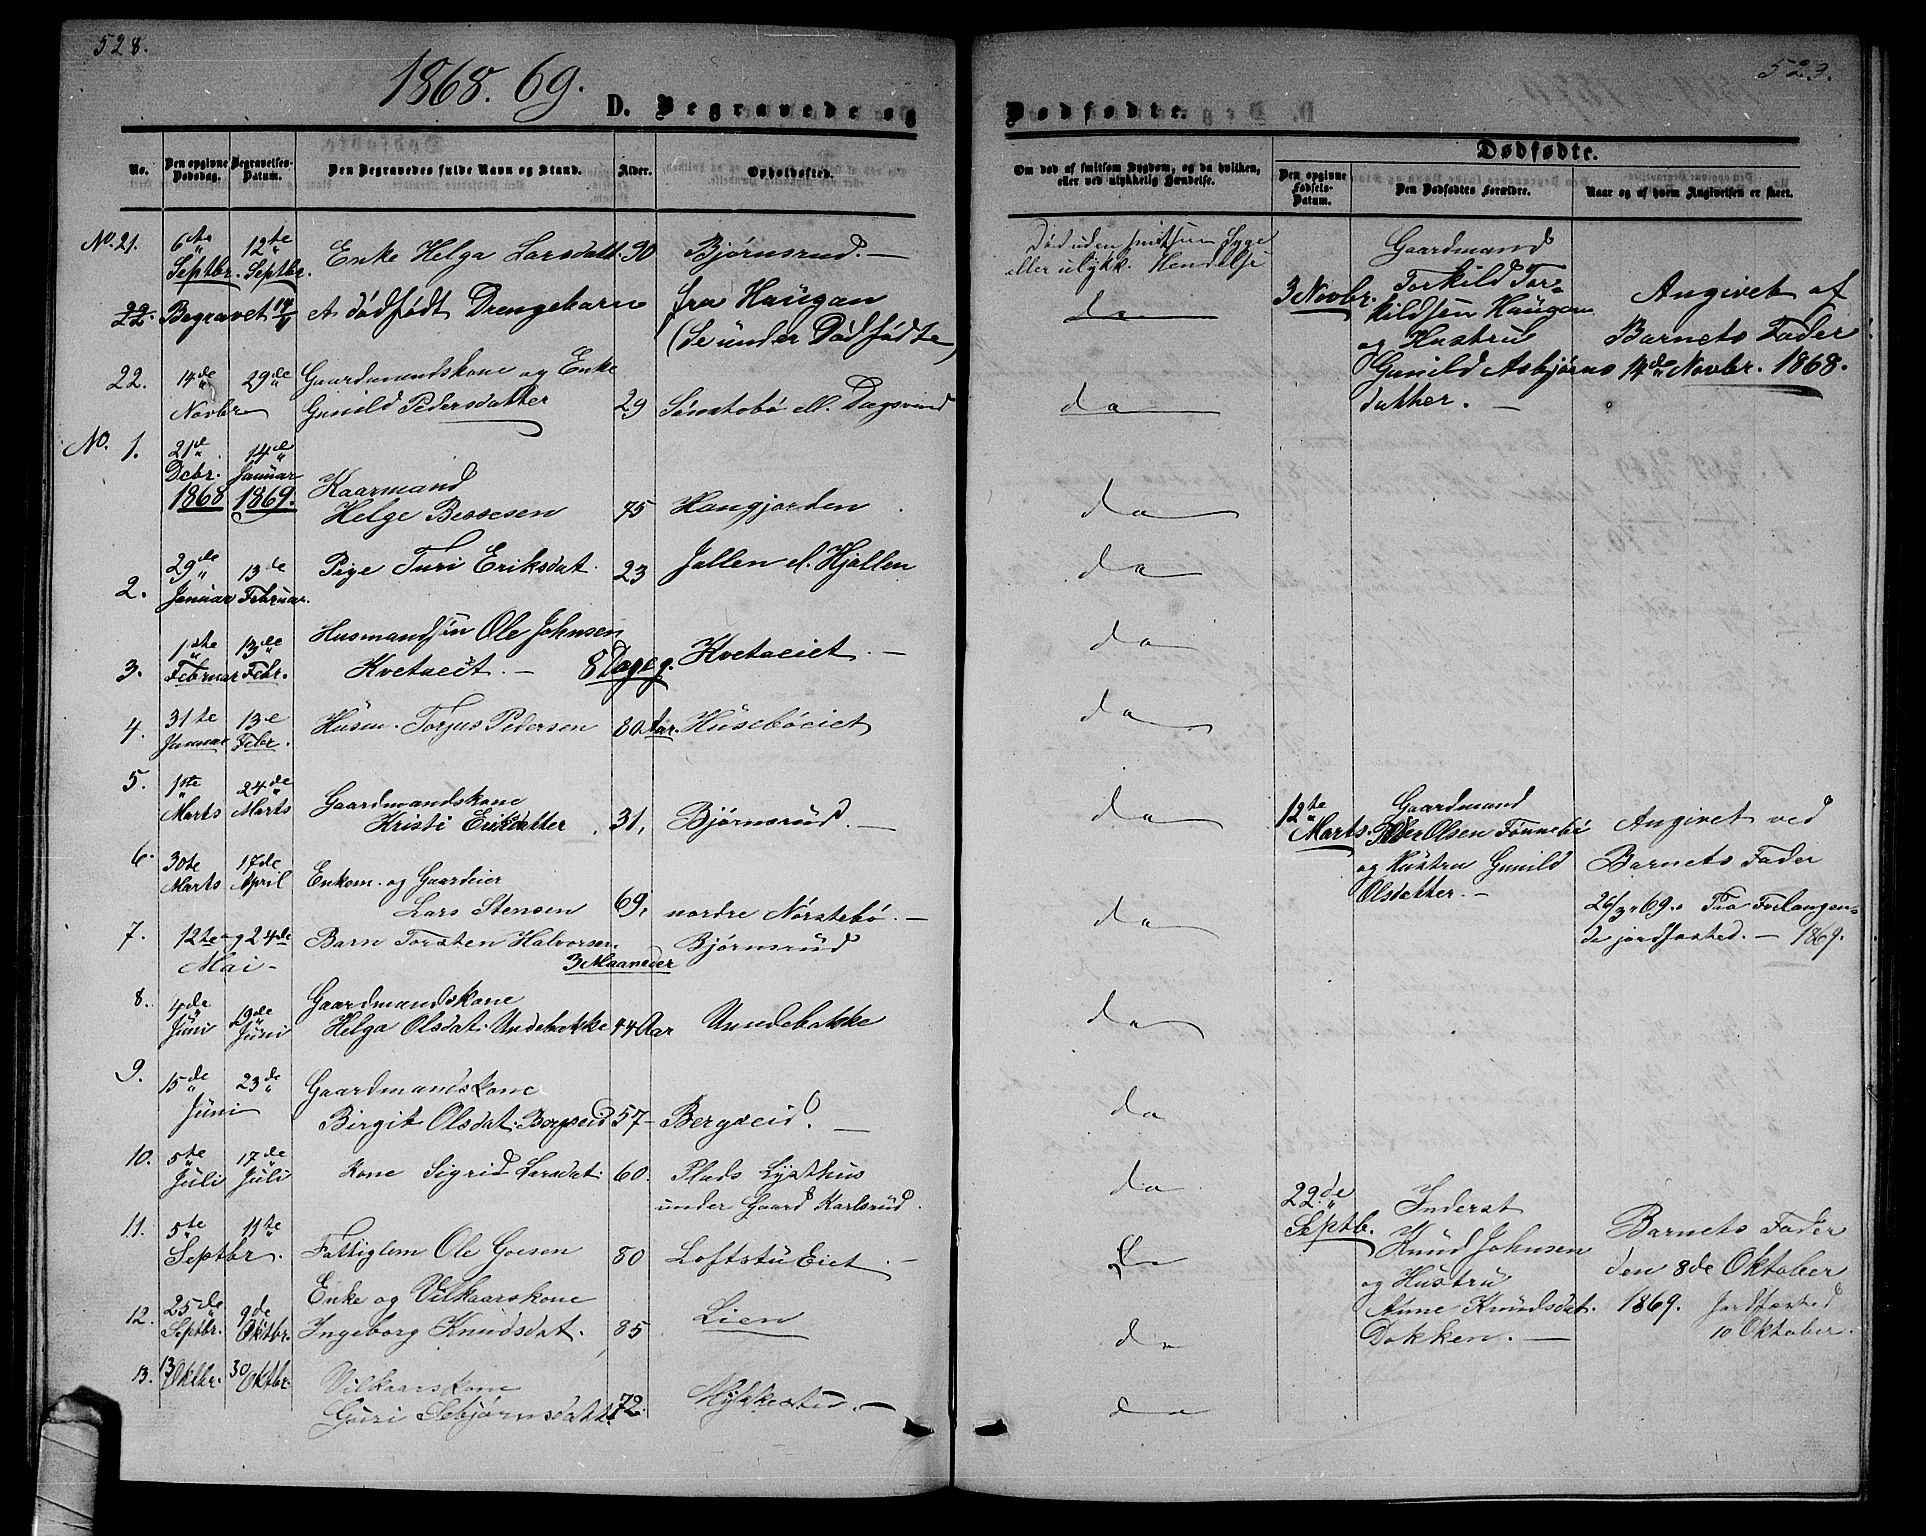 528.
1868. 69.
D. Begravede og
No.
Den opgivne Dødsdag.
Begravelses-Datum.
Den Begravedes fulde Navn og Stand.
Alder.
Opholdssted.
No. 21. 6te Septbr. 12te Septbr. Enke Helga Larsdatt. 90 Bjørnsrud. —
22. Begravet 14/11 et dødfødt Drengebarn fra Haugan
(Se under Dødfødte)
22. 14de Novbr 29de Gaardmandskone og Enke
Gunild Pedersdatter 29
No. 1. 21de Decbr. 1868 14de Januar 1869. Kaarmand
Helge Bessesen 75 Haugjorden
2. 29de Januar 13de Februar. Pige Turi Eriksdat. 23 Jallen el. Hjallen
3. 1ste Februar 13de Febr. Husmandsøn Ole Johnsen
Kvetaeit. — 8 Dage g. Kvetaeiet. —
4. 31te Januar 13e Febr. Husm. Torjus Pedersen 80 Aar. Husebøeiet
5. 1ste Marts 24de Marts Gaardmandskone
Kristi Eriksdatter 31, Bjørnsrud. —
6. 30te Marts 17de April Enkem. og Gaardeier
Lars Stensen 69, nordre Nørstebø. —
7. 12te og 24de Mai - Barn Torsten Halvorsen
3 Maaneder Bjørnsrud
8. 4de Juni 19de Juni Gaardmandskone
Helga Olsdat. Undebakke 44 Aar Undebakke
9. 15de 23de Juni Gaardmandskone
Birgit Olsdat. Bergseid 57 - Bergseid. —
10. 5te Juli 17de Juli Kone Sigrid Larsdat. 60. Plads Lysthus
under Gaard Karlsrud.
11. 5te 11te Septbr. Fattiglem Ole Goesen 80 Loftstu Eiet. —
12. 25de Septbr. 9de Oktbr. Enke og Vilkaarskone
Ingeborg Knudsdat. 85 Lien
13. 13 Oktbr. 30 Oktbr. Vilkaarskone
Guri Sebjørnsdatt. 72. Mykkestue. —
523.
Dødfødte.
Om død af smitsom Sygdom, og da hvilken, eller ved ulykkelig Hændelse.
Dødfødte.
Den opgivne Fødsels-Datum.
Den Dødfødtes Forældre.
Naar og af hvem Angivelsen er skeet.
Død uden smitsom Syge
eller ulykk. Hendelse
do
do
do
do
do
do
do
do
do
do
do
do
do
do
3 Novbr.
Gaardmand
Torkild Tor-
kildsen Haugan
og Hustru
Gunild Asbjørns
datther. —
Angivet af
Barnets Fader
14de Novbr. 1868.
12te Marts.
Gaardmand
Peder Olsen Tønnebø
og Hustru Gunild
Olsdatter. —
Angivet ved
Barnets Fader
26/3 69. Paa Forlangen-
de jordfæsted. — 1869.
22de Septb.
Inderst
Knud Johnsen
og Hustru
Anne Knudsdat.
Dokken. —
Barnets Fader
den 8de Oktober
1869. Jordfæsted
10 Oktober.